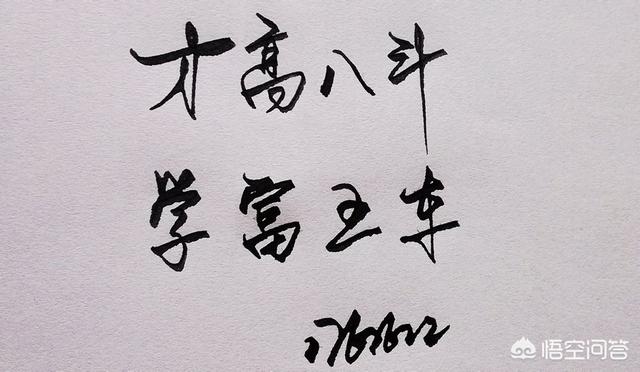 才高八斗
学富五车
悟空问答